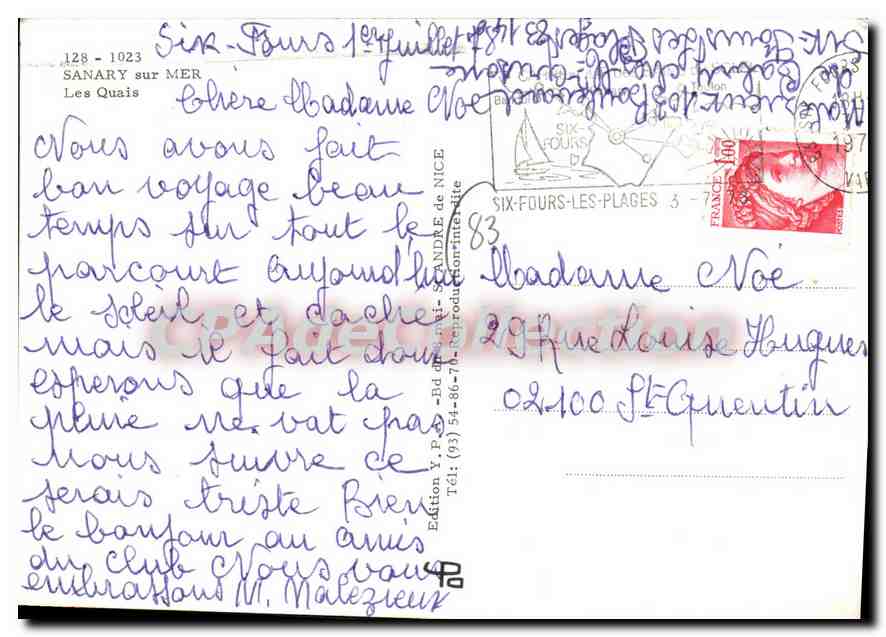 128 - 1023
SANARY sur MER
Les Quais
Six-Fours 1er Juillet 78
Chère Madame Noé
Nous avons fait
bon voyage beau
temps sur tout le
parcourt aujourd'hui
le soleil et caché
mais il fait doux
esperons que la
pluie ne vat pas
nous suivre ce
serais triste Bien
le bonjour au amis
du club Nous vous
embrassons M. Malézieux
Edition Y. P. -Bd du mai- St ANDRE de NICE
Tél: (93) 54-86-70-Reproduction interdite
SIX-
FOURS
SIX-FOURS-LES-PLAGES 3 -7
FRANCE 1,00
POSTES
VAR
83
Madame Noé
29 Rue Louise Hugues
02100 St-Quentin
CPAdeCollection